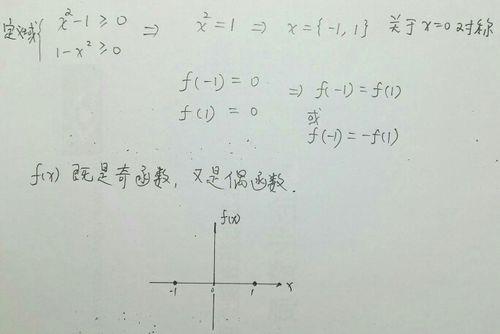 定义域{ x²-1≥0 ⇒ x²=1 ⇒ x={-1,1} 关于x=0对称
1-x²≥0
f(-1)=0 ⇒ f(-1)=f(1)
f(1)=0 或
f(-1)=-f(1)
f(x)既是奇函数,又是偶函数.
f(x)
-1 0 1 x